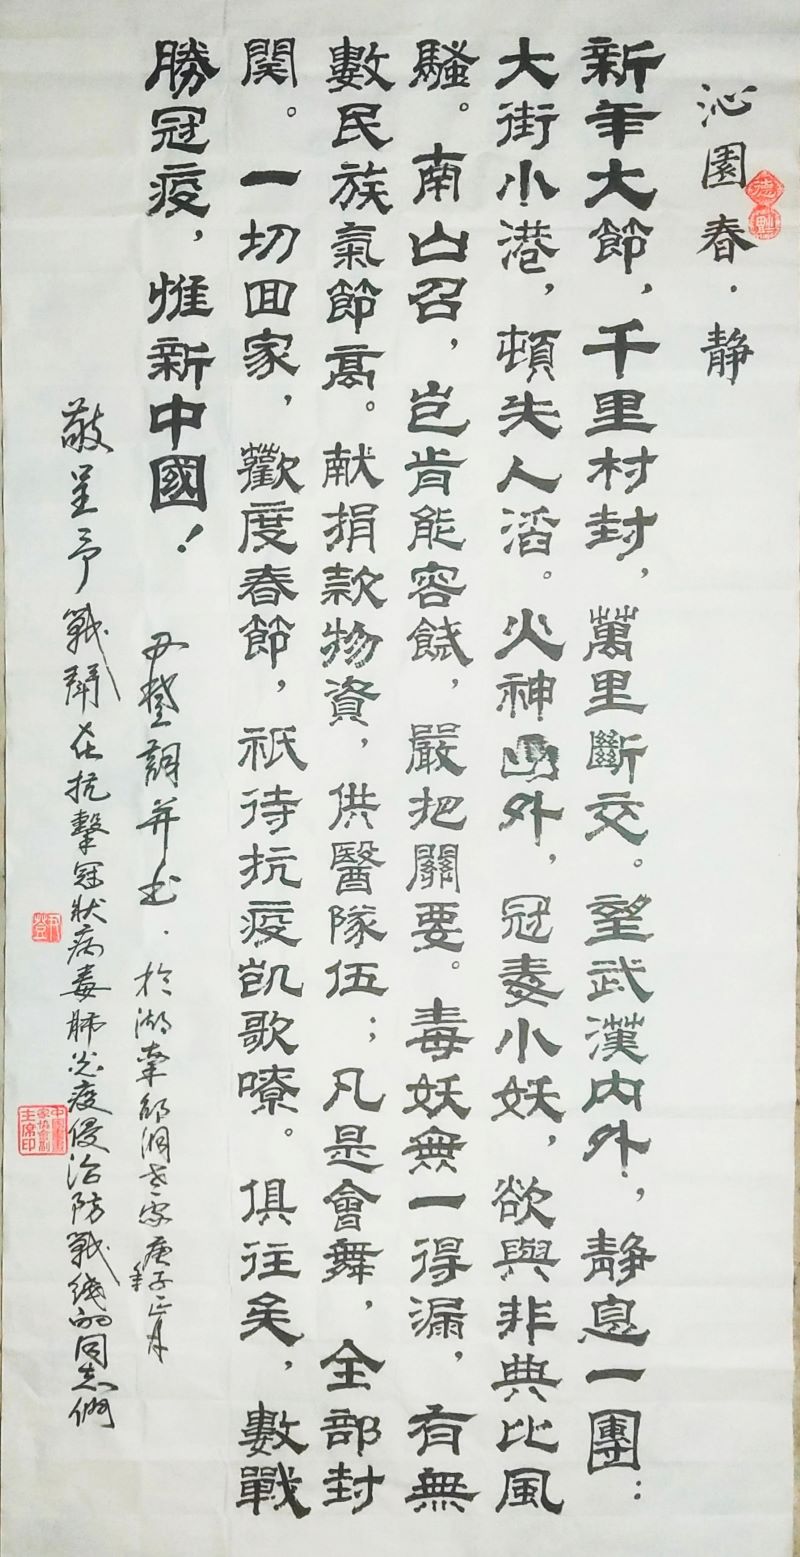 沁園春·靜
新年大節，千里村封，萬里斷交。望武漢内外，靜息一團：
大街小港，頓失人滔。火神山外，冠毒小妖，欲與非典比風
騷。南山召，豈肯能容餓，嚴把關要。毒妖無一得漏，有無
數民族氣節高。献捐款物資，供醫隊伍；凡是會舞，全部封
関。一切回家，歡度春節，祇待抗疫凱歌嘹。俱往矣，數戰
勝冠疫，惟新中國！
登詞并书．於湖南邵洞老家庚子年正月
敬呈予戰鬭在抗擊冠狀病毒肺炎疫侵治防戰线的同志們